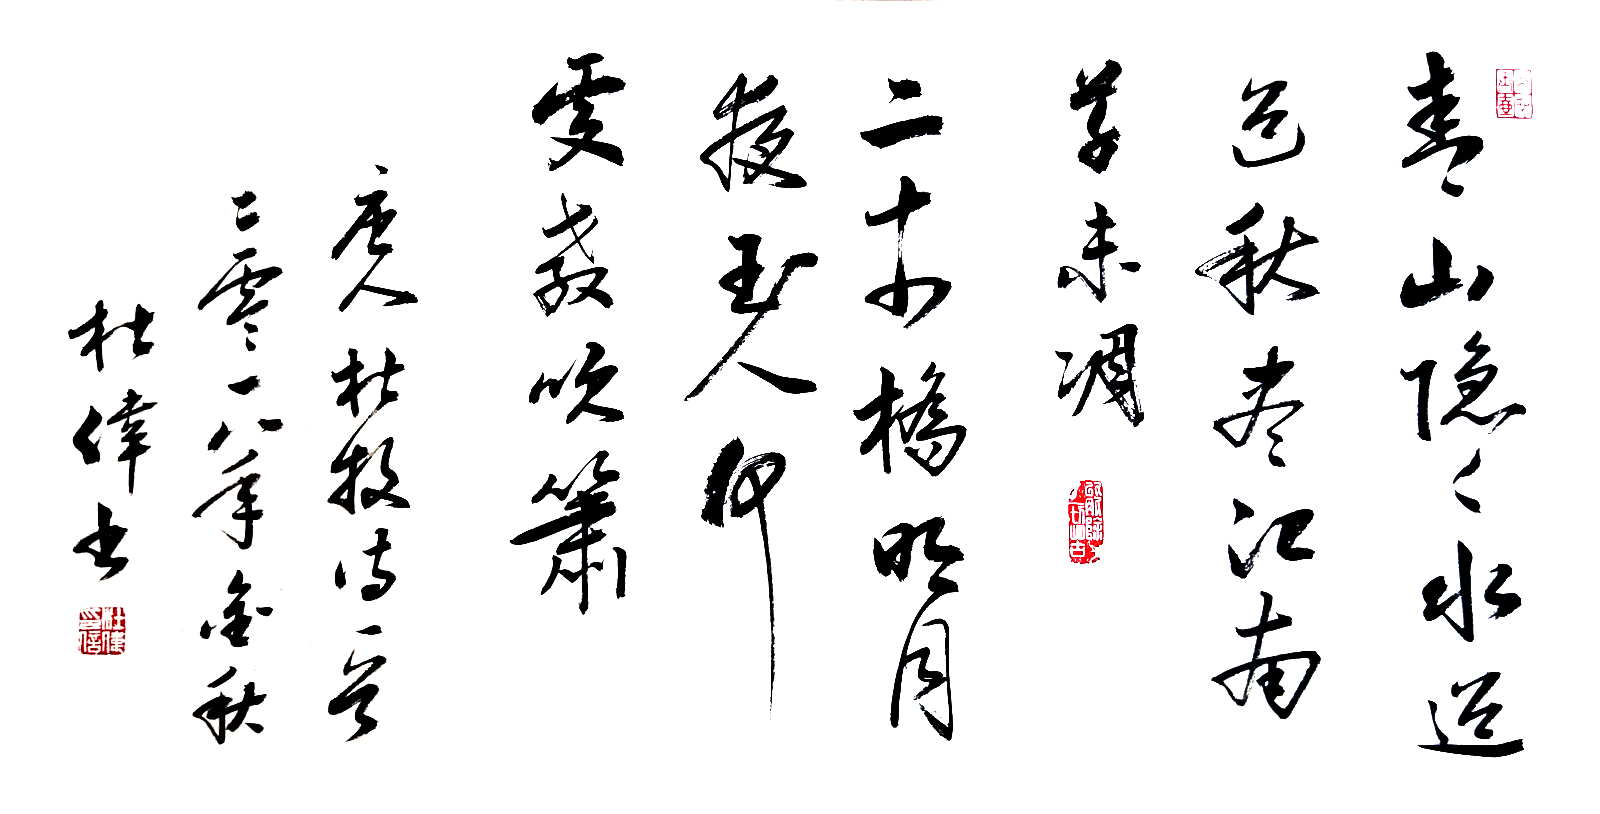 青山隐々水迢
迢秋尽江南
草未凋
二十四橋明月
夜玉人何
處教吹簫
唐人杜牧诗一首
二零一八年金秋
杜偉书